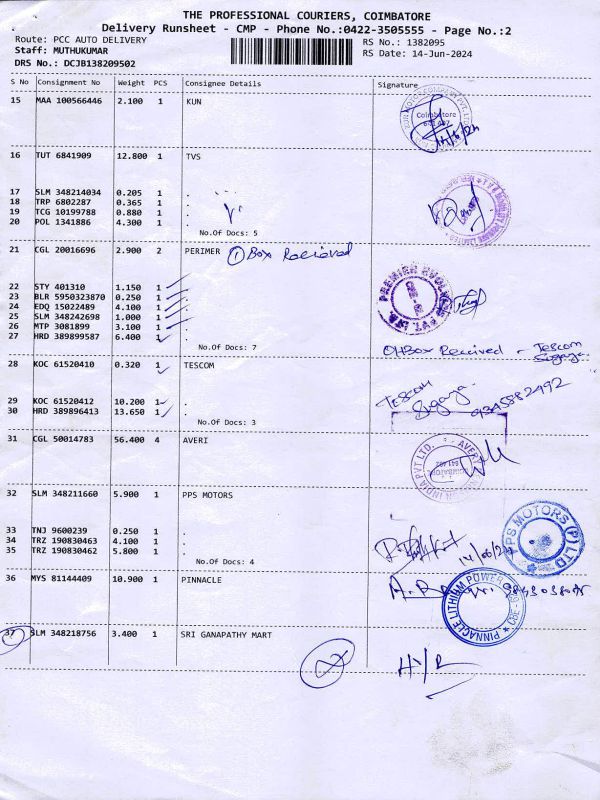 THE PROFESSIONAL COURIERS, COIMBATORE
Delivery Runsheet - CMP - Phone No.:0422-3505555 - Page No.:2
Route: PCC AUTO DELIVERY
RS No.: 1382095
Staff: MUTHUKUMAR
RS Date: 14-Jun-2024
DRS No.: DCJB138209502
S No Consignment No Weight PCS Consignee Details Signature
15 MAA 100566446 2.100 1 KUN
Coimbatore
14/6/24
16 TUT 6841909 12.800 1 TVS
17 SLM 348214034 0.205 1 .
18 TRP 6802287 0.365 1 .
19 TCG 10199788 0.880 1 .
20 POL 1341886 4.300 1 .
No.Of Docs: 5
21 CGL 20016696 2.900 2 PERIMER 1 Box Recieved
22 STY 401310 1.150 1 .
23 BLR 5950323870 0.250 1 .
24 EDQ 15022489 4.100 1 .
25 SLM 348242698 1.000 1 .
26 MTP 3081899 3.100 1 .
27 HRD 389899587 6.400 1 .
No.Of Docs: 7
Box Received - Tescom
28 KOC 61520410 0.320 1 TESCOM
Tescom
9345582492
29 KOC 61520412 10.200 1 .
30 HRD 389896413 13.650 1 .
No.Of Docs: 3
31 CGL 50014783 56.400 4 AVERI
INDIA PVT LTD.
32 SLM 348211660 5.900 1 PPS MOTORS
PPS MOTORS (P) LTD
33 TNJ 9600239 0.250 1 .
34 TRZ 190830463 4.100 1 .
35 TRZ 190830462 5.800 1 .
No.Of Docs: 4
14/06/24
36 MYS 81144409 10.900 1 PINNACLE
PINNACLE LITHIUM POWER
37 SLM 348218756 3.400 1 SRI GANAPATHY MART